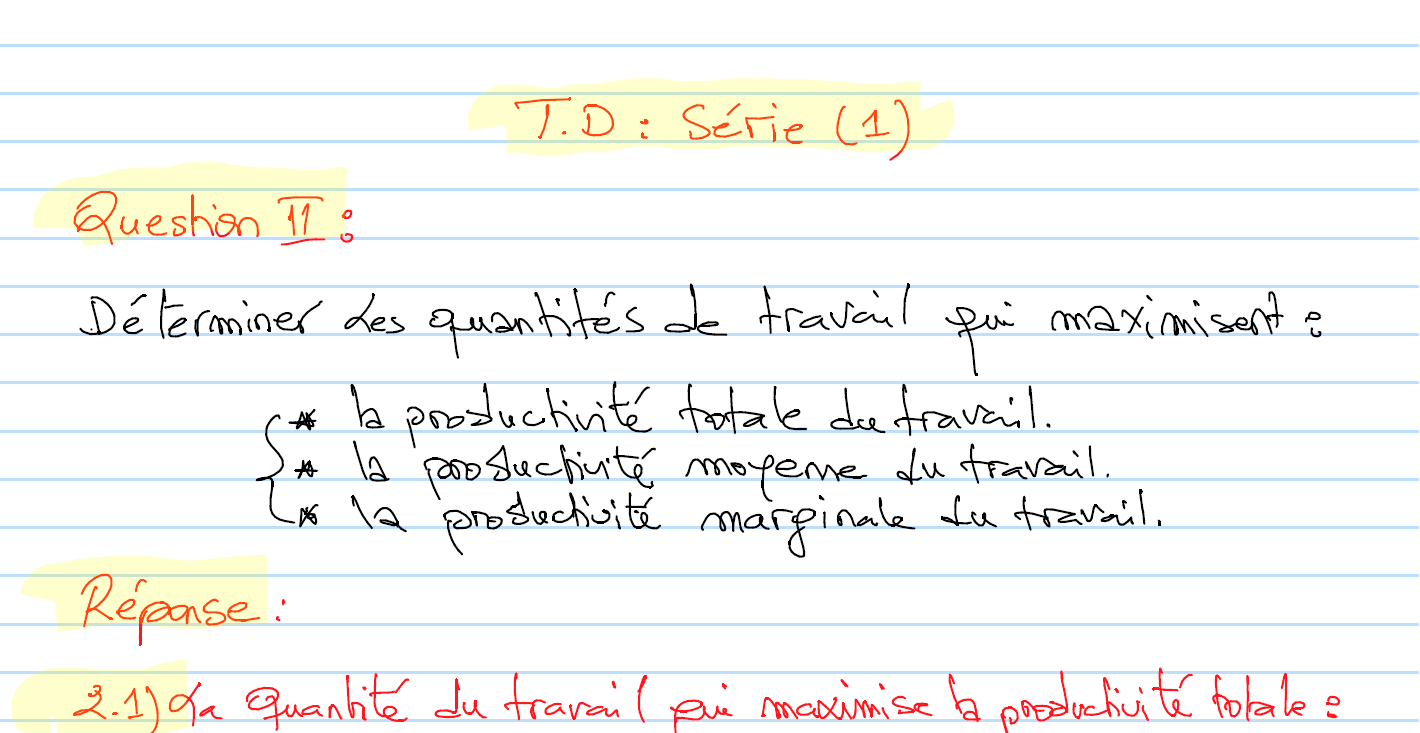 T.D : Série (1)
Question II :
Déterminer Les quantités de travail qui maximisent :
* la productivité totale du travail.
* la productivité moyenne du travail.
* la productivité marginale du travail.
Réponse :
2.1) La Quantité du travail qui maximise la productivité totale :